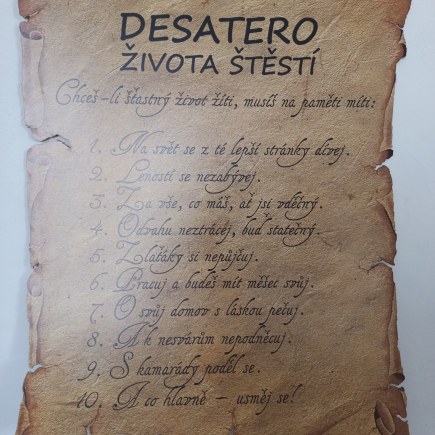 DESATERO
ŽIVOTA ŠTĚSTÍ
Chceš-li šťastný život žíti, musíš na paměti míti:
1. Na svět se z té lepší stránky dívej.
2. Leností se nezabývej.
3. Za vše, co máš, ať jsi vděčný.
4. Odvahu neztrácej, buď statečný.
5. Zlaťáky si nepůjčuj.
6. Pracuj a budeš mít měšec svůj.
7. O svůj domov s láskou pečuj.
8. A k nesvárům nepodněcuj.
9. S kamarády poděl se.
10. A co hlavně – usměj se!